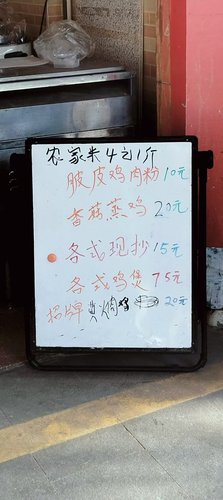 农家米4元1斤
脆皮鸡肉粉10元
香菇蒸鸡20元
各式现抄15元
各式鸡煲75元
招牌 焖鸡 20元